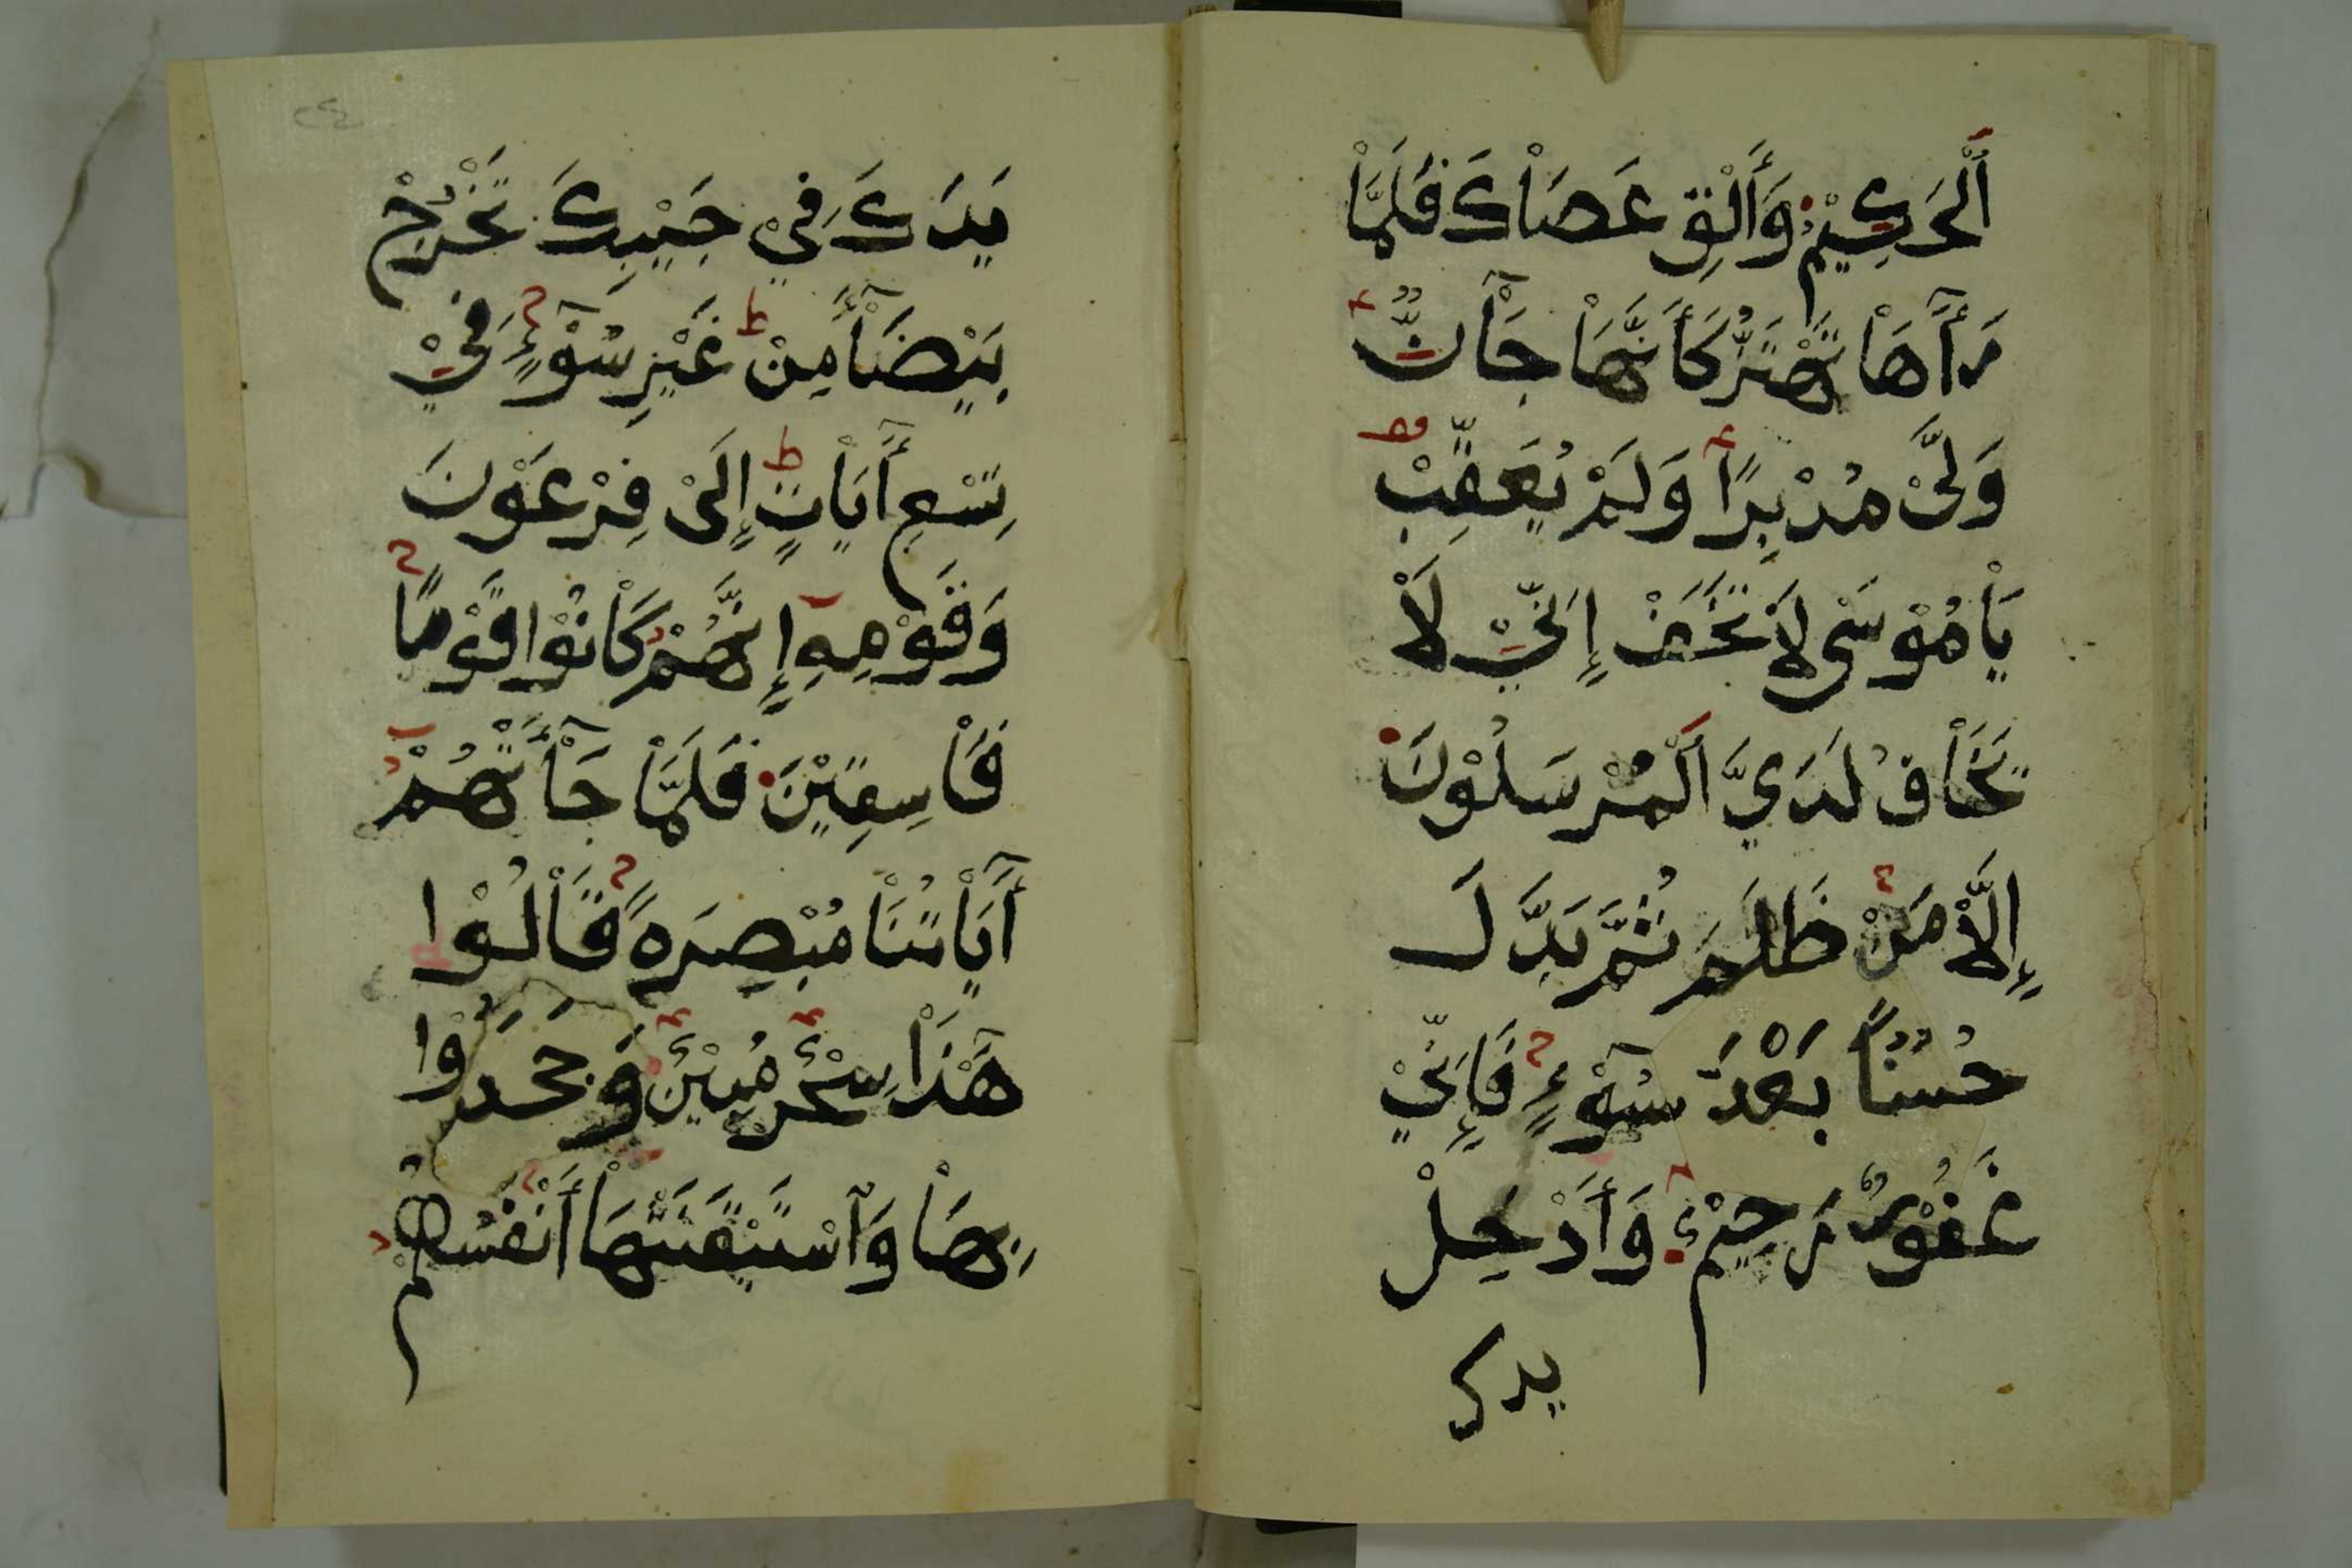 أَلْحَكِيْمُ وَأَلْقِ عَصَاْكَ فَلَمَّاْ
رَأَٓهَاْ تَهْتَزُّ كَأَنَّهَاْ جَآْنٌّ
وَلَّىْ مُدْبِرًا وَلَمْ يُعَقِّبْ
يَاْمُوْسَى لَاْ تَخَفْ إِنِّيْ لَاْ
يَخَاْفُ لَدَيَّ أَلْمُرْسَلُوْنَ
إِلَّاْ مَنْ ظَلَمَ ثُمَّ بَدَّلَ
حُسْنًا بَعْدَ سُوْٓءٍ فَإِنِّيْ
غَفُوْرٌ رَحِيْمٌ وَأَدْخِلْ
يدك
٢٤
يَدَكَ فِيْ جَيْبِكَ تَخْرُجْ
بَيْضَآْءَ مِنْ غَيْرِ سُوْٓءٍ فِيْ
تِسْعِ أَٓيَاْتٍ إِلَىْ فِرْعَوْنَ
وَقَوْمِهِ إِنَّهُمْ كَاْنُوْا قَوْمًا
فَاْسِقِيْنَ فَلَمَّاْ جَآْءَتْهُمْ
أَٓيَاْتُنَاْ مُبْصِرَةً قَاْلُوْا
هَٓذَاْ سِحْرٌ مُبِيْنٌ وَجَحَدُوْا
بِهَاْ وَٱسْتَيْقَنَتْهَاْ أَنْفُسُهُمْ